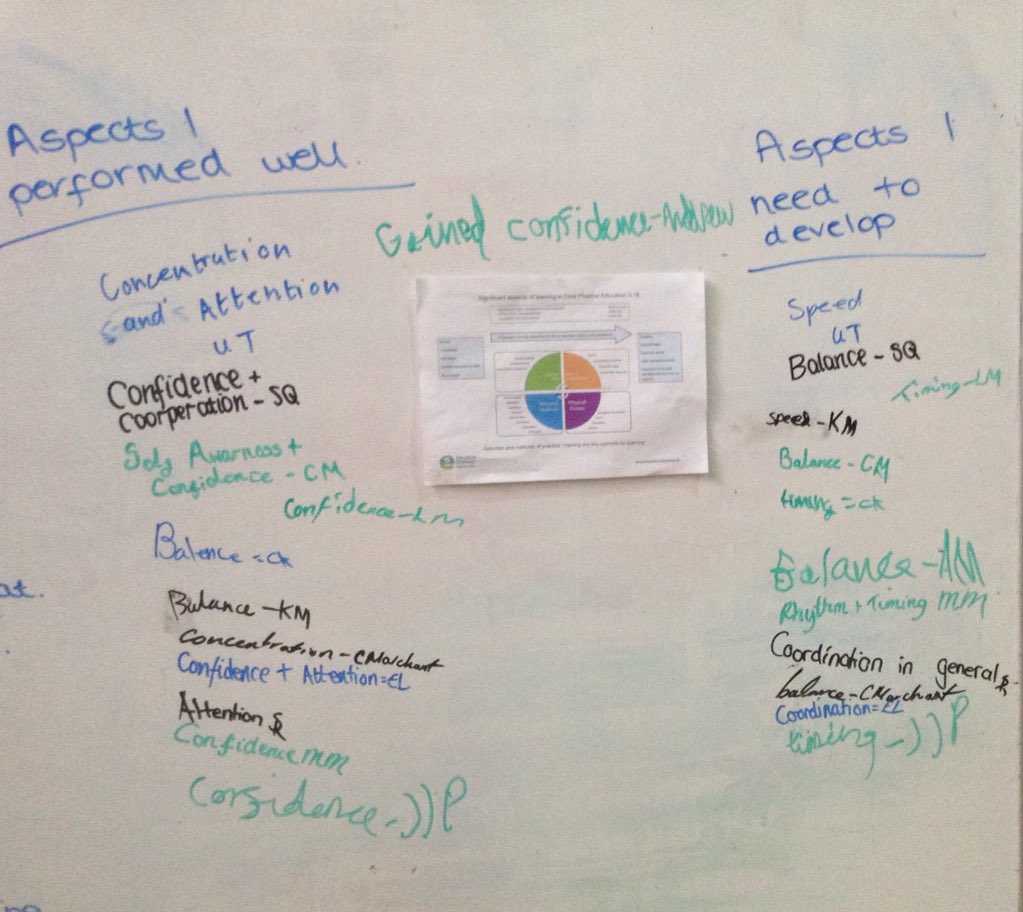 Aspects I
performed well.
Concentration
and Attention
UT
Confidence +
Coorperation - SQ
Self Awarness +
Confidence - CM
Confidence - LM
Balence = CK
Balance - KM
Concentration - CMarchant
Confidence + Attention = EL
Attention
Confidence MM
Confidence - ))P
Gained confidence - Andrew
Significant aspects of learning in Core Physical Education 3-18
Aspects I
need to
develop
Speed
UT
Balance - SQ
Timing - LM
Speed - KM
Balance - CM
timing = CK
Balance - AM
Rhythm + Timing MM
Coordination in general
balance - CMarchant
Coordination = EL
timing - ))P
at.